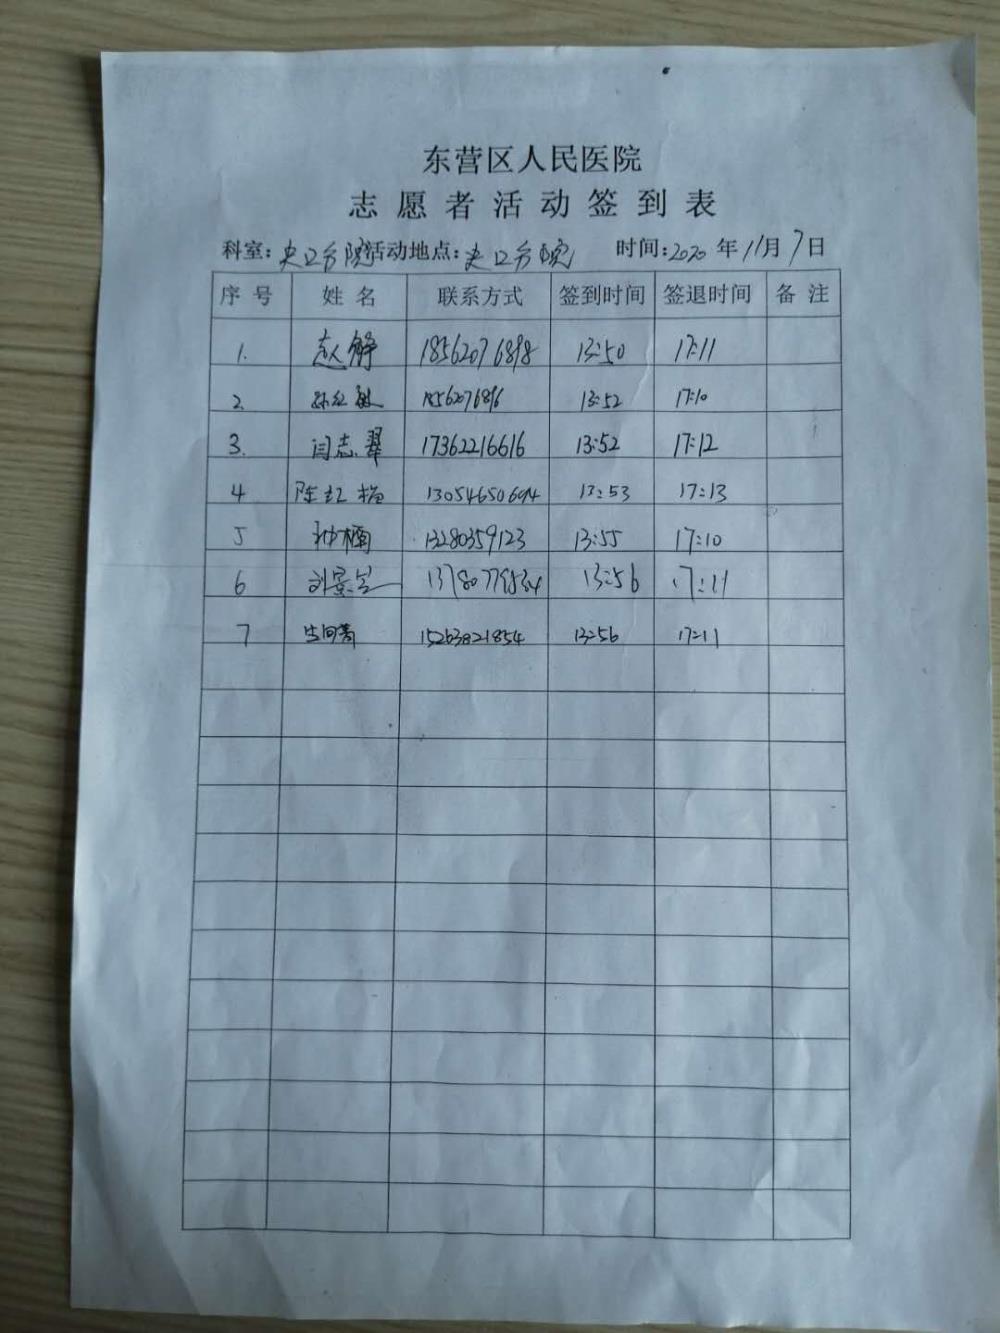 东营区人民医院
志愿者活动签到表
科室:史口分院 活动地点:史口分院 时间:2020年11月7日
序号 姓名 联系方式 签到时间 签退时间 备注
1. 赵静 18562076898 13:50 17:11
2. 孙红敏 13:52 17:10
3. 闫志翠 17362216616 13:52 17:12
4 陈红梅 13054650694 13:53 17:13
5 孙楠 13280359123 13:55 17:10
6 刘景兰 13:56 17:11
7 15263821854 13:56 17:11